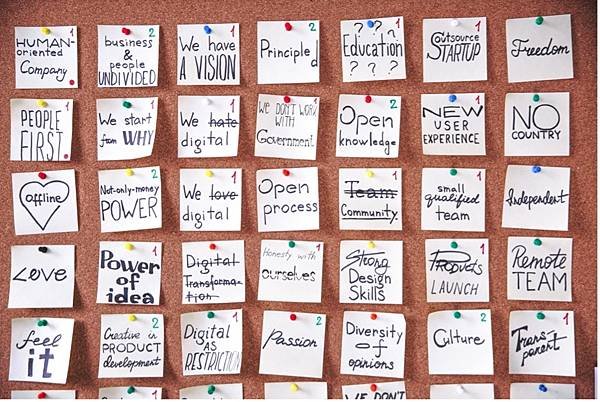 1
HUMAN-
oriented
Company
2
business
&
people
UNDIVIDED
1
We have
A VISION
2
Principled
1
? ? ?
Education
? ? ?
1
Outsource
STARTUP
Freedom
1
PEOPLE
FIRST
We start
from WHY
1
We hate
digital
1
WE DON'T WORK
WITH
Government
2
Open
knowledge
1
NEW
USER
EXPERIENCE
2
NO
COUNTRY
offline
2
Not-only-money
POWER
1
We love
digital
1
Open
process
1
Team
Community
1
small
qualified
team
Independent
Love
1
Power
of
idea
1
Digital
Transforma-
tion
1
Honesty with
ourselves
Strong
Design
Skills
1
Products
LAUNCH
2
Remote
TEAM
feel
it
2
Creative in
PRODUCT
development
1
Digital
AS
RESTRICTION
2
Passion
Diversity
of
opinions
2
Culture
1
Trans-
parent
WE DON'T